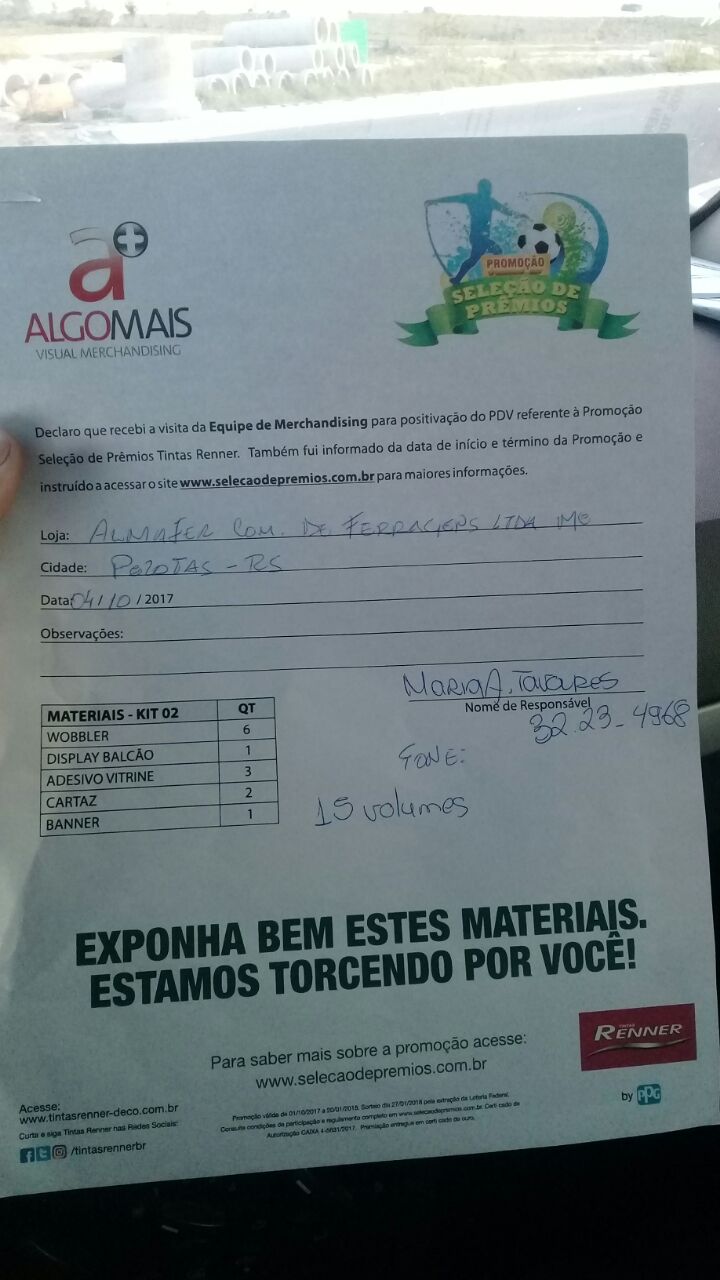 a+
ALGOMAIS
VISUAL MERCHANDISING
PROMOÇÃO
SELEÇÃO DE
PRÊMIOS
Declaro que recebi a visita da Equipe de Merchandising para positivação do PDV referente à Promoção
Seleção de Prêmios Tintas Renner. Também fui informado da data de início e término da Promoção e
instruído a acessar o site www.selecaodepremios.com.br para maiores informações.
Loja: ALMAFER COM. DE FERRAGENS LTDA ME
Cidade: PELOTAS - RS
Data: 04/10/2017
Observações:
MARIA A. TAVARES
Nome de Responsável
32.23-4968
FONE:
15 volumes
MATERIAIS - KIT 02 QT
WOBBLER 6
DISPLAY BALCÃO 1
ADESIVO VITRINE 3
CARTAZ 2
BANNER 1
EXPONHA BEM ESTES MATERIAIS.
ESTAMOS TORCENDO POR VOCÊ!
Para saber mais sobre a promoção acesse:
www.selecaodepremios.com.br
TINTAS
RENNER
by PPG
Acesse:
www.tintasrenner-deco.com.br
Curta e siga Tintas Renner nas Redes Sociais:
/tintasrennerbr
Promoção válida de 01/10/2017 a 20/01/2018. Sorteio dia 27/01/2018 pela extração da Loteria Federal.
Consulte condições de participação e regulamento completo em www.selecaodepremios.com.br. Certificado de
Autorização CAIXA Premiação entregue em certificado de ouro.